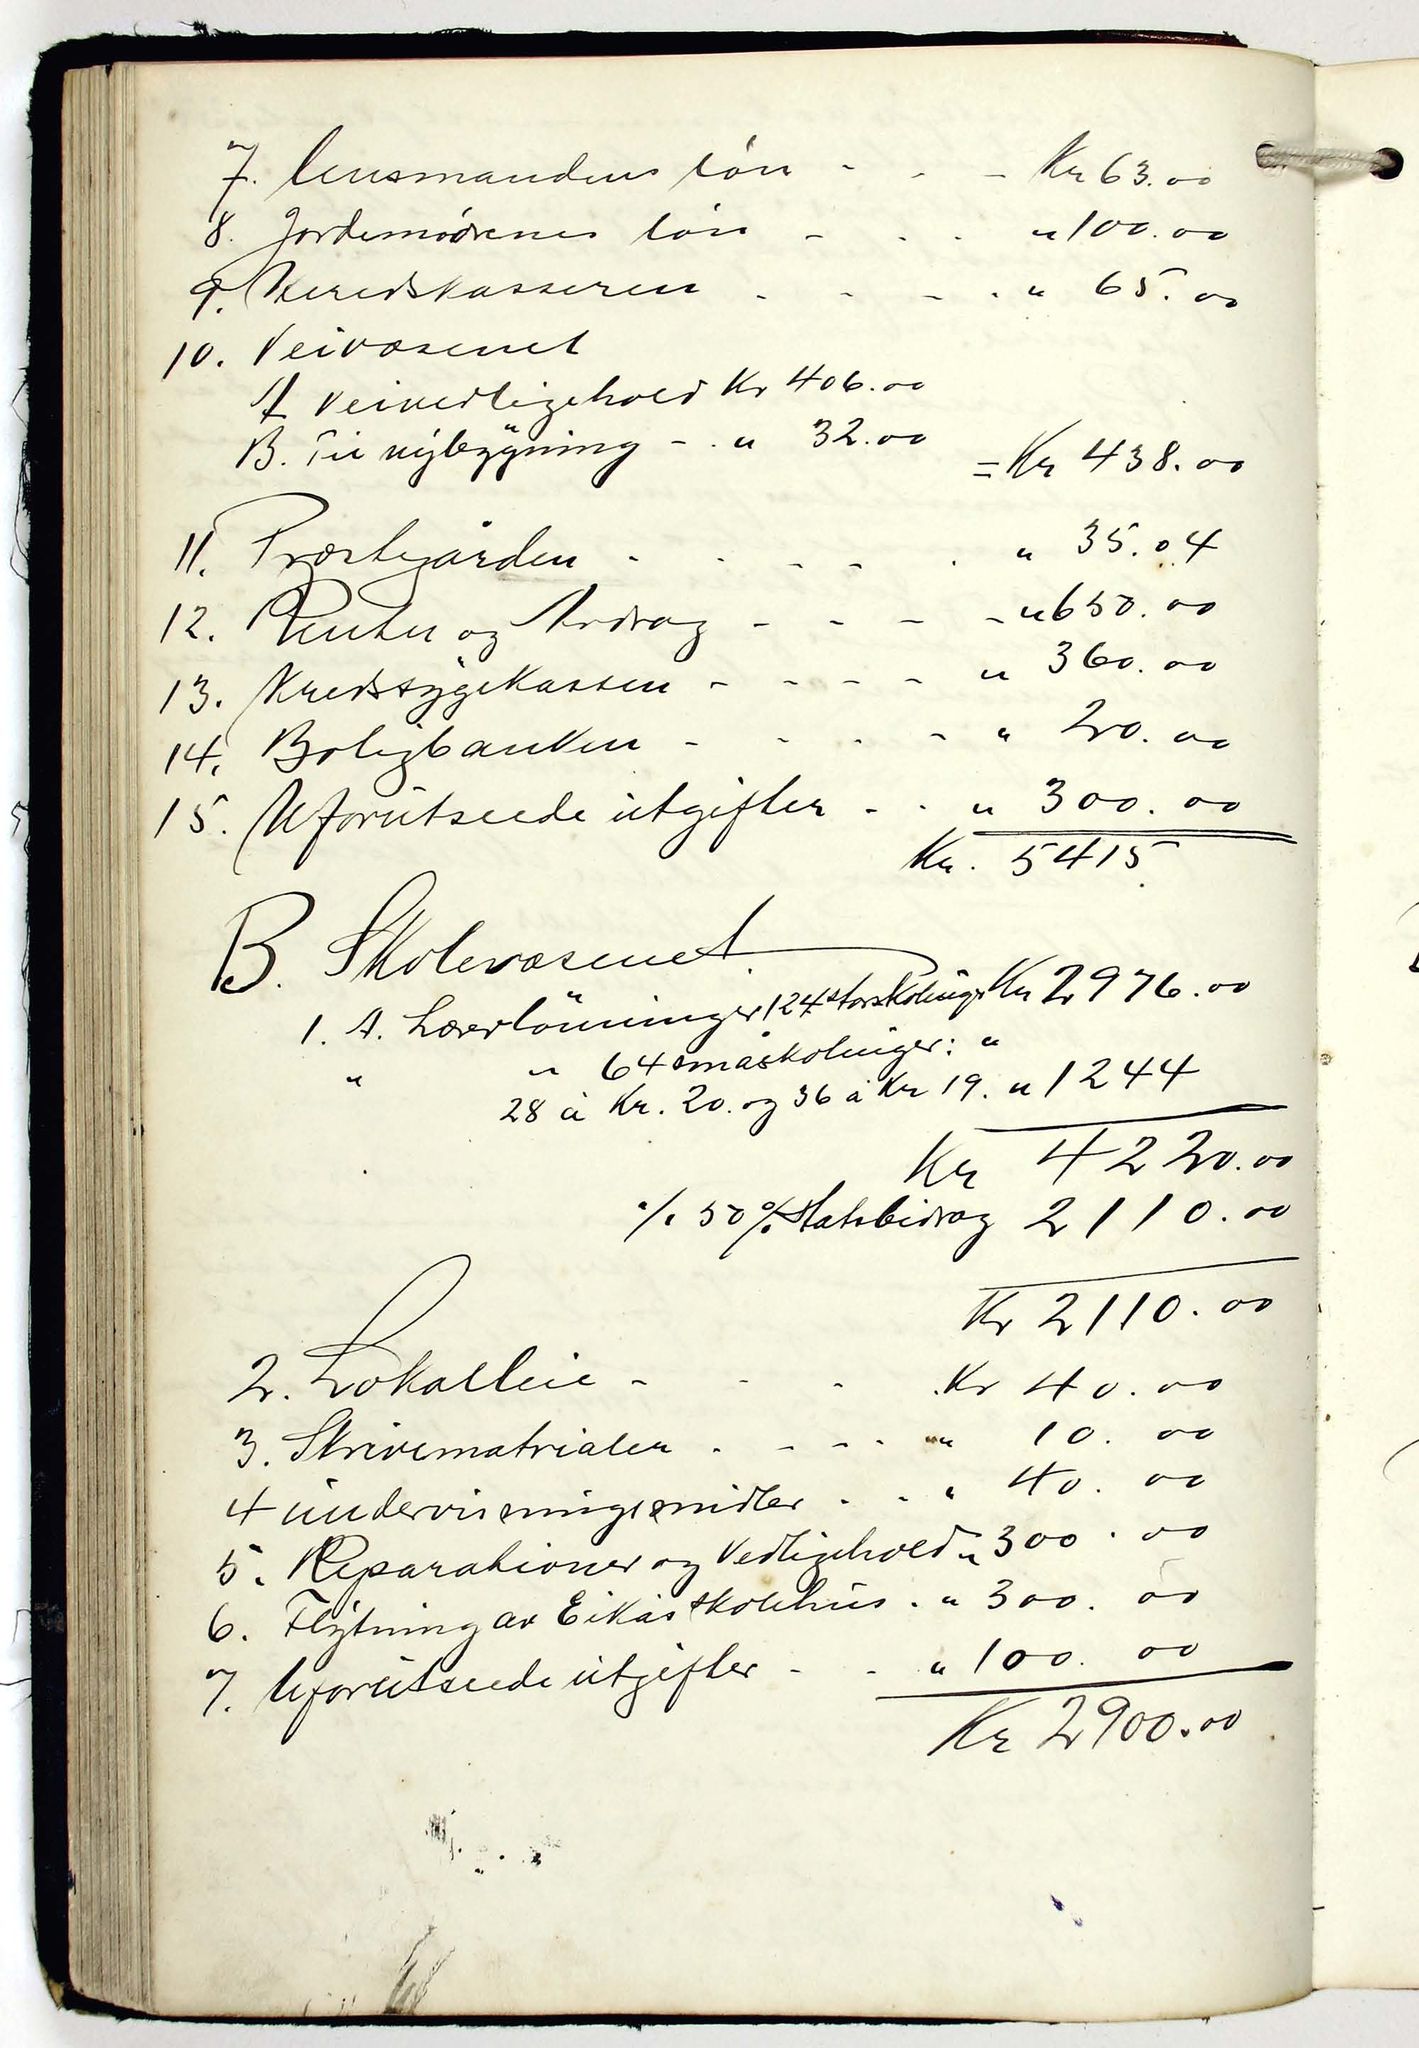 7. Lensmandens løn - - - Kr 63.00
8. Jordemødrenes løn - - - " 100.00
9. Heredskasseren - - - - " 65.00
10. Veivæsenet
A Veivedligehold Kr 406.00
B. Til nybygning - - " 32.00
= Kr 438.00
11. Præstegården - - - - - " 35.04
12. Renter og Avdrag - - - - " 650.00
13. Kredssygekassen - - - - " 360.00
14. Boligbanken - - - - " 20.00
15. Uforutseede utgifter - - " 300.00
Kr. 5415
B. Skolevæsenet
1. A. Lærerlönninger 124 storskoleuger Kr 2976.00
" " 64 småskoleuger: "
28 à Kr. 20. og 36 à Kr 19. " 1244
Kr 4220.00
./. 50 % Statsbidrag 2110.00
Kr 2110.00
2. Lokalleie - - - Kr 40.00
3. Skrivematrialer - - - - " 10.00
4 undervisningsmidler - - " 40.00
5. Reparationer og Vedligehold " 300.00
6. Flytning av Eikås skolehus. " 300.00
7. Uforutseede utgifter - - " 100.00
Kr 2900.00